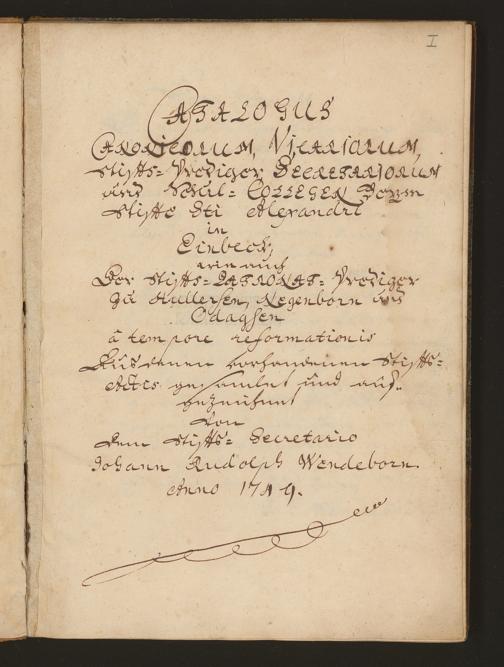 I
CATALOGUS
CANONICORUM, VICARIORUM,
Stiffts-Prediger, SECRETARIORUM
und Schul-COLLEGEN beym
Stiffte Sti Alexandri
in
Einbeck,
wie auch
Der Stiffts-PATRONAT-Prediger
zu Hullersen, Negenborn und
Odagsen
â tempore reformationis
Aus denen vorhandenen Stiffts-
Actis gesamlet und auf-
gezeichnet
von
dem Stiffts-Secretario
Johann Rudolph Wendeborn.
Anno 1749.